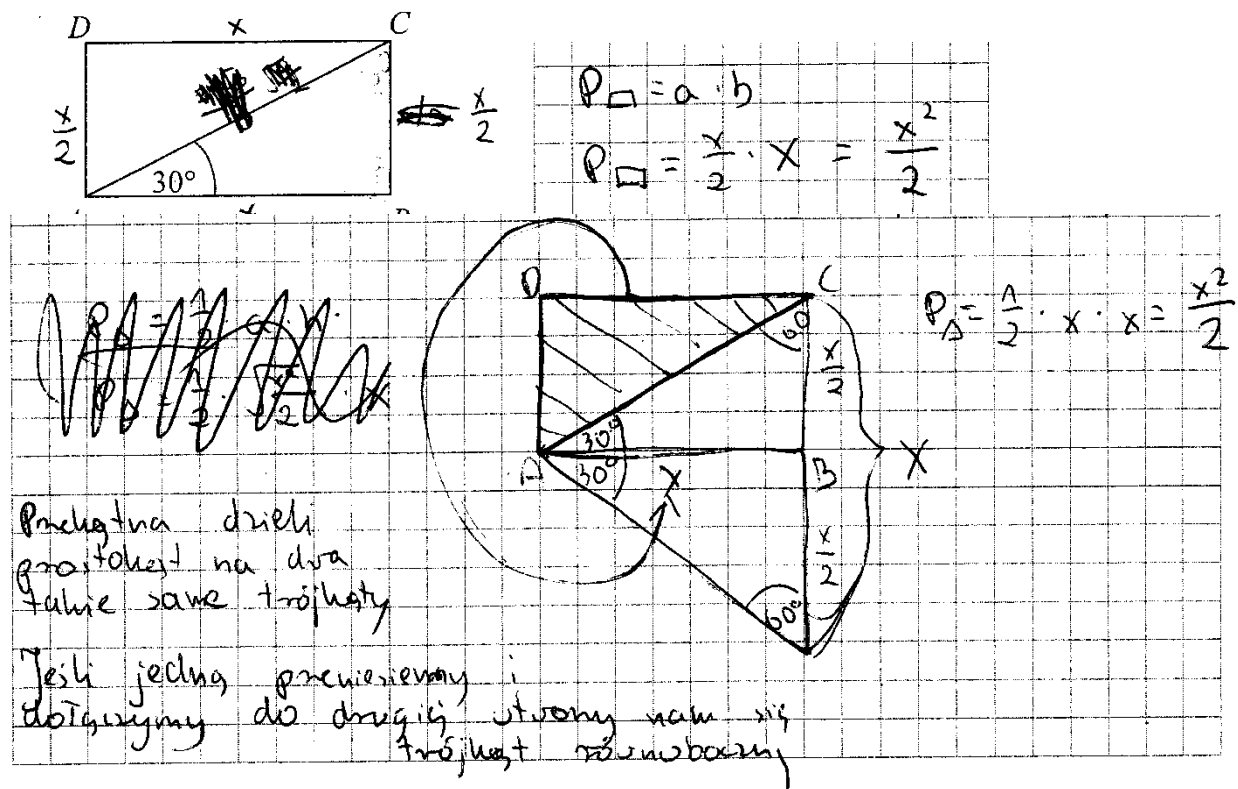 D x C
x/2
30°
x/2
P□ = a · b
P□ = x/2 · x = x²/2
D C
60
x/2
30°
A 30° x B
x
x/2
60°
P△ = 1/2 · x · x = x²/2
Przekątna dzieli
prostokąt na dwa
takie same trójkąty
Jeśli jedną przeniesiemy i
dołączymy do drugiej utworzy nam się
trójkąt równoboczny